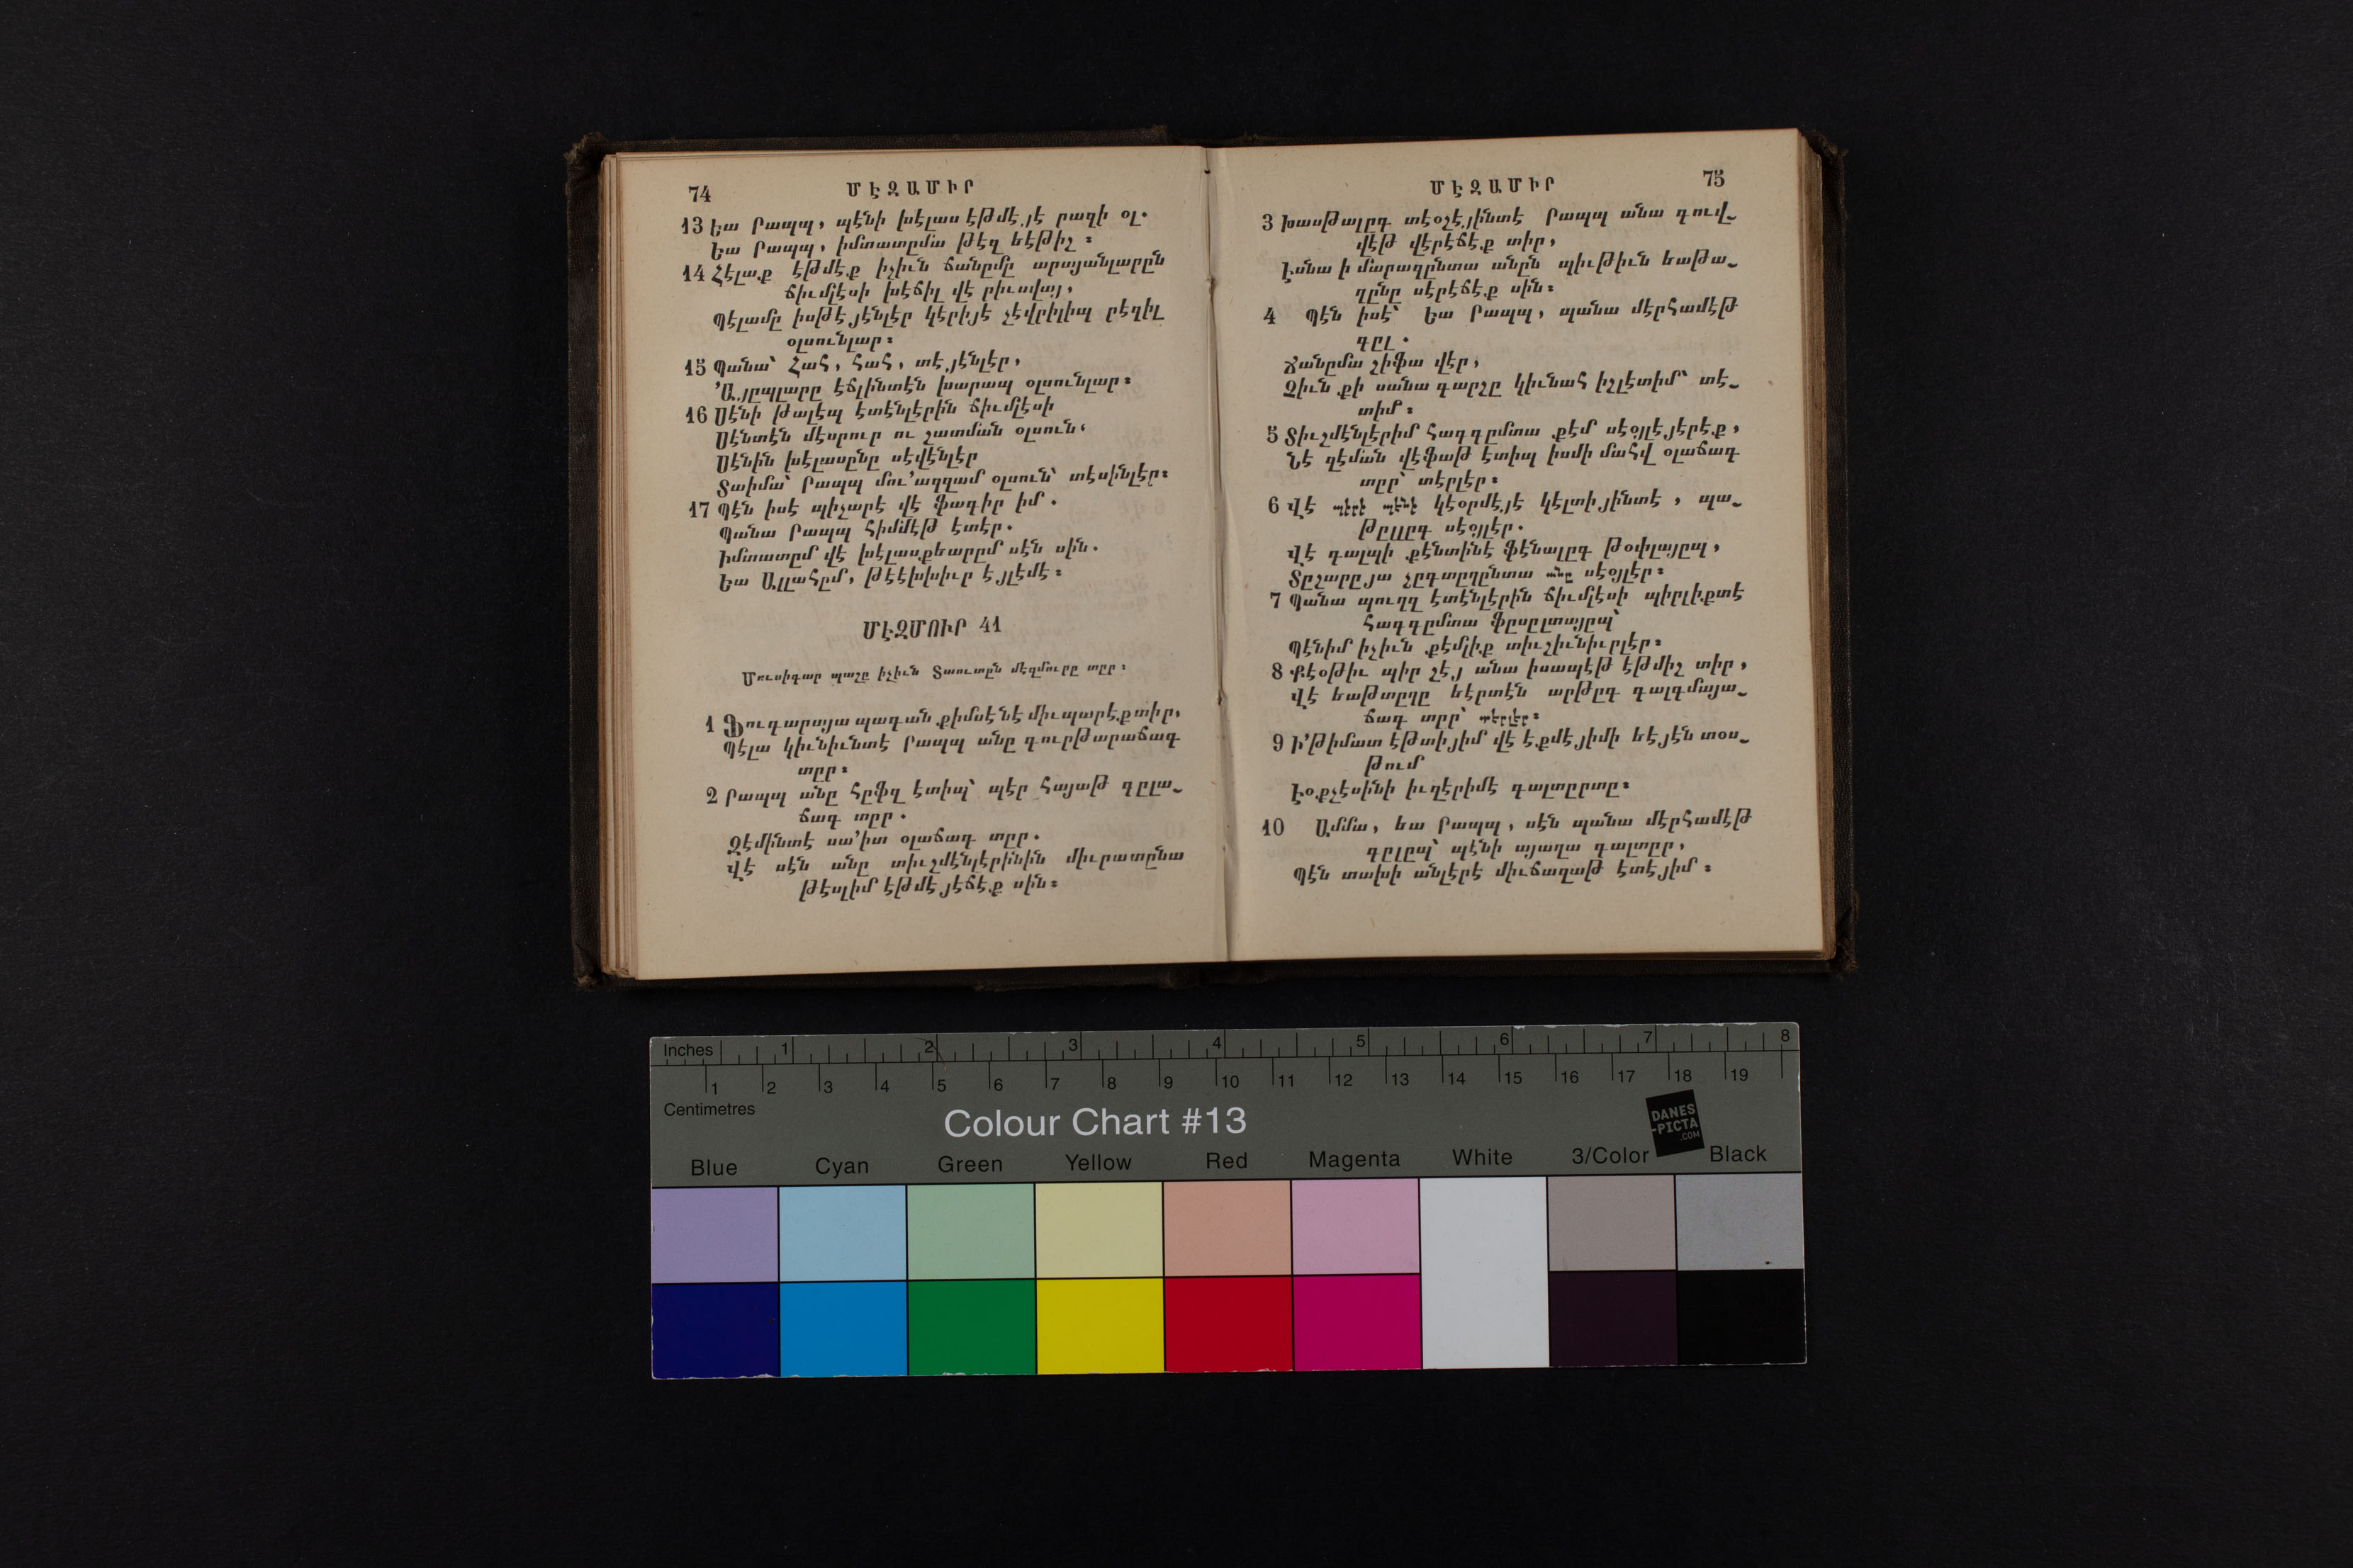 74
ՄԷԶԱՄԻՐ
13 Եա Րապպ, պէնի խէլաս էթմէյէ րաղի օլ.
Եա Րապպ, իմտատըմա թէզ եէթիշ։
14 Հէլաք էթմէք իչիւն ճանըմը արայանլարըն
ճիւմլէսի խէճիլ վէ րիւսվայ,
Պէլամը իսթէյէնլէր կէրիյէ չէվրիլիպ րէզիլ
օլսունլար։
15 Պանա՝ Հահ, հահ, տէյէնլէր,
՚Այըպլարը էճլինտէն խարապ օլսունլար։
16 Սէնի թալէպ էտէնլէրին ճիւմլէսի
Սէնտէն մէսրուր ու շատման օլսուն՝
Սէնին խէլասընը սէվէնլէր
Տաիմա՝ Րապպ մու՚ազզամ օլսուն՝ տէսինլէր։
17 Պէն իսէ պիչարէ վէ ֆագիր իմ.
Պանա Րապպ հիմմէթ էտէր.
Իմտատըմ վէ խէլասքեարըմ սէն սին.
Եա Ալլահըմ, թէէխխիւր էյլէմէ։
ՄԷԶՄՈՒՐ 41
Մուսիգար պաշը իչիւն Տաուտըն մէզմուրը տըր։
1 Ֆուգարայա պագան քիմսէ նէ միւպարէք տիր,
Պէլա կիւնիւնտէ Րապպ անը գուրթարաճագ
տըր։
2 Րապպ անը հըֆզ էտիպ՝ պէր հայաթ գըլա֊
ճագ տըր.
Զէմինտէ սա՚իտ օլաճագ տըր.
Վէ սէն անը տիւշմէնլէրինին միւրատընա
թէսլիմ էթմէյէճէք սին։
75
ՄԷԶԱՄԻՐ
3 Խասթալըգ տէօշէյինտէ Րապպ անա գուվ֊
վէթ վէրէճէք տիր,
Էսնա ի մարազընտա անըն պիւթիւն եաթա֊
ղընը սէրէճէք սին։
4 Պէն իսէ՝ Եա Րապպ, պանա մէրհամէթ
գըլ.
Ճանըմա շիֆա վէր,
Զիւն քի սանա գարշը կիւնահ իշլէտիմ՝ տէ֊
տիմ։
5 Տիւշմէնլէրիմ հագգըմտա քէմ սէօյլէյէրէք,
Նէ զէման վէֆաթ էտիպ իսմի մահվ օլաճագ
տըր՝ տէրլէր։
6 Վէ պէրէ պէնի կէօրմէյէ կէլտիյինտէ, պա֊
թըլլըգ սէօյլէր.
Վէ գալպի քէնտինէ ֆէնալըգ թօփլայըպ,
Տըշարըյա չըգտըղընտա անը սէօյլէր։
7 Պանա պուղզ էտէնլէրին ճիւմլէսի պիրլիքտէ
հագգըմտա ֆըսըլտայըպ՝
Պէնիմ իչիւն քէմլիք տիւշիւնիւրլէր։
8 Քէօթիւ պիր շէյ անա իսապէթ էթմիշ տիր,
Վէ եաթտըղը եէրտէն արթըգ գալգմայա֊
ճագ տըր՝ տէրլէր։
9 Ի՚թիմատ էթտիյիմ վէ էքմէյիմի եէյէն տօս֊
թում
Էօքչէսինի իւզէրիմէ գալտըրտը։
10 Ամմա, եա Րապպ, սէն պանա մէրհամէթ
գըլըպ՝ պէնի այաղա գալտըր,
Պէն տախի անլէրէ միւճազաթ էտէյիմ։
Inches 1 2 3 4 5 6 7 8
1 2 3 4 5 6 7 8 9 10 11 12 13 14 15 16 17 18 19
Centimetres
Colour Chart #13
DANES
-PICTA
.COM
Blue Cyan Green Yellow Red Magenta White 3/Color Black